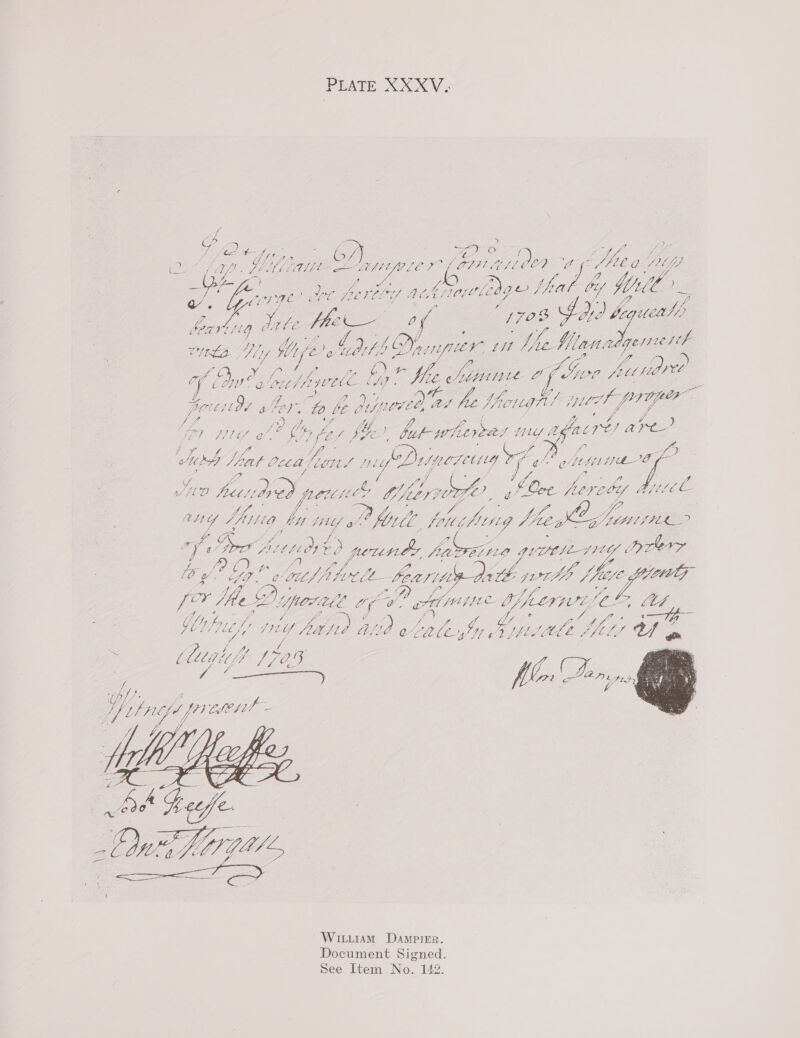 PLATE XXXV.
I Capt. William Dampier Comander of the Ship
St. George doe hereby acknowledge that by Will
bearing date the of 1703 I did bequeath
unto My Wife Judith Dampier in the Management
of Edwd. Southwell Esqr. the Summe of Two hundred
pounds ster. to be disposed, as he thought most proper
for my sd. Wifes Use, but whereas my affaires are
Such that occassions my Disposeing of sd. Summe of
Two hundred pounds Otherwise, I Doe hereby anul
any thing in my sd. Will, touching the sd. Summe
of Two hundred pounds, haveing given my Orders
to sd. Esqr. Southwell bearing date with these psents
for the Disposall of sd. Summe Otherwise. as
Witness my hand and Seale In Kinsale this 21th
August 1703
Wm Dampier
Witness present
Arthr Keeffe
Keeffe.
Edwd. Morgan
WILLIAM DAMPIER.
Document Signed.
See Item No. 142.